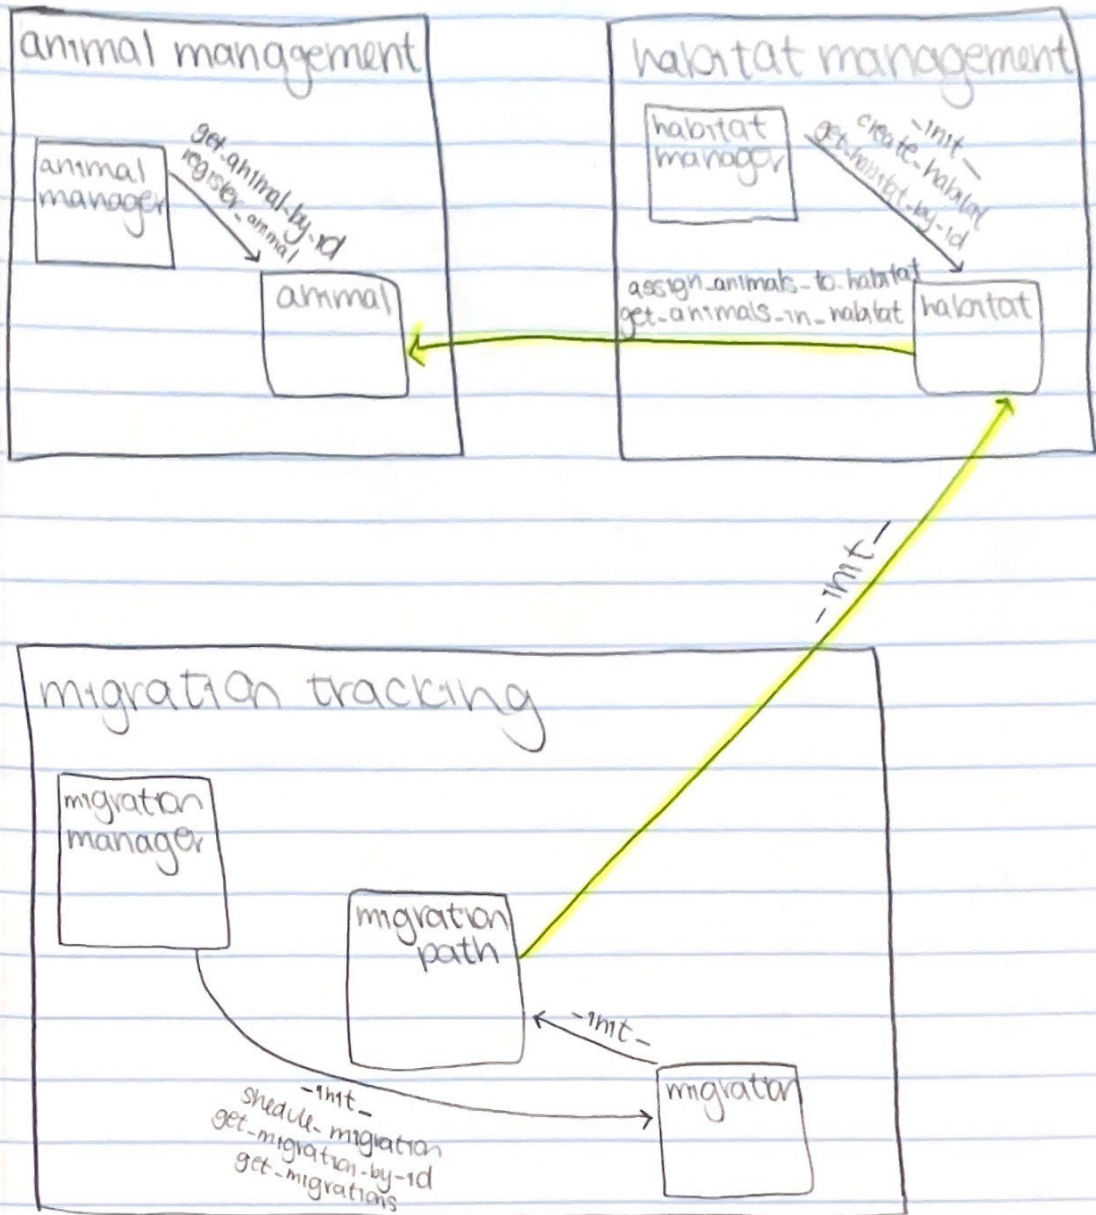 animal management
animal
manager
get_animal_by_id
register_animal
animal
habitat management
habitat
manager
_init_
create_habitat
get_habitat_by_id
assign_animals_to_habitat
get_animals_in_habitat
habitat
_init_
migration tracking
migration
manager
migration
path
_init_
migration
_init_
shedule_migration
get_migration_by_id
get_migrations